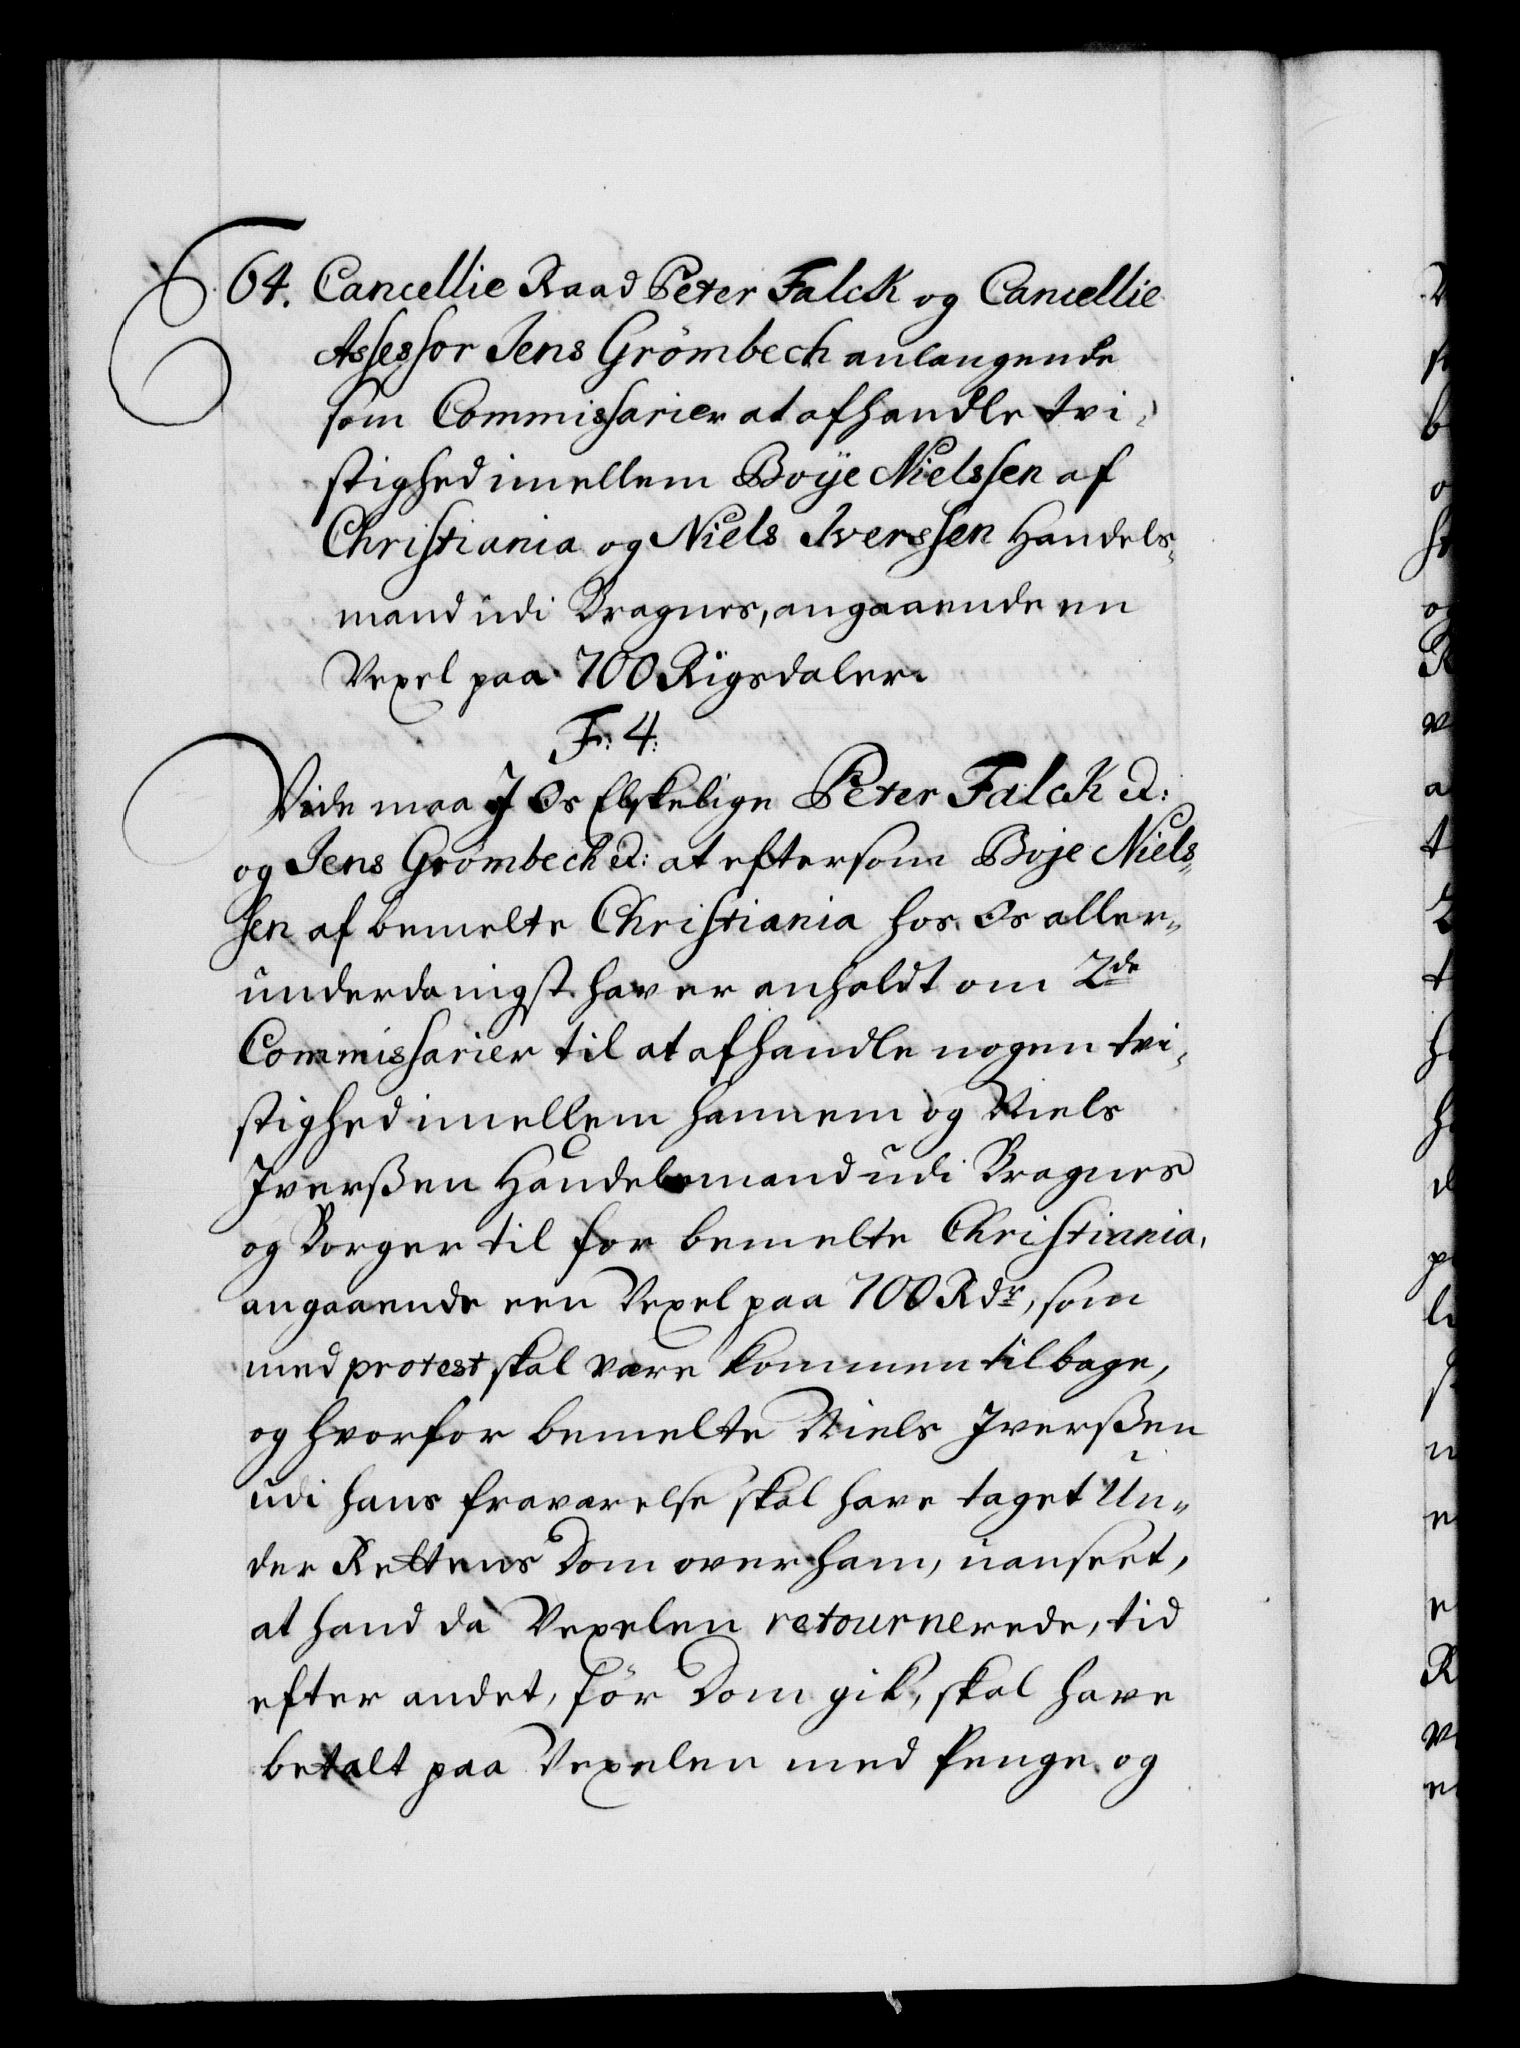 64. Cancellie Raad Peter Falck og Cancellie
Assessor Jens Grömbech anlangende
som Commissarier at afhandle tvi-
stighed imellem Boye Nielssen af
Christiania og Niels Iverssen Handels-
mand udi Bragnes, angaaende en
Vexel paa 700 Rigsdaler.
Fr: 4:
Vide maa I Os Elskelige Peter Falck etc:
og Jens Grömbech etc: at eftersom Boje Niels-
sen af bemelte Christiania hos Os aller-
underdanigst haver anholdt om 2de
Commissarier til at afhandle nogen tvi-
stighed imellem hannem og Niels
Iverßen Handelsmand udi Bragnes
og Borger til for bemelte Christiania,
angaaende een Vexel paa 700 Rdr, som
med protest skal være kommen tilbage,
og hvorfor bemelte Niels Iverßen
udi hans fraværelse skal have taget Un-
der Rettens Dom over ham, uanseet,
at hand da Vexelen retournerede, tid
efter andet, för Dom gik, skal have
betalt paa Vexelen med Penge og